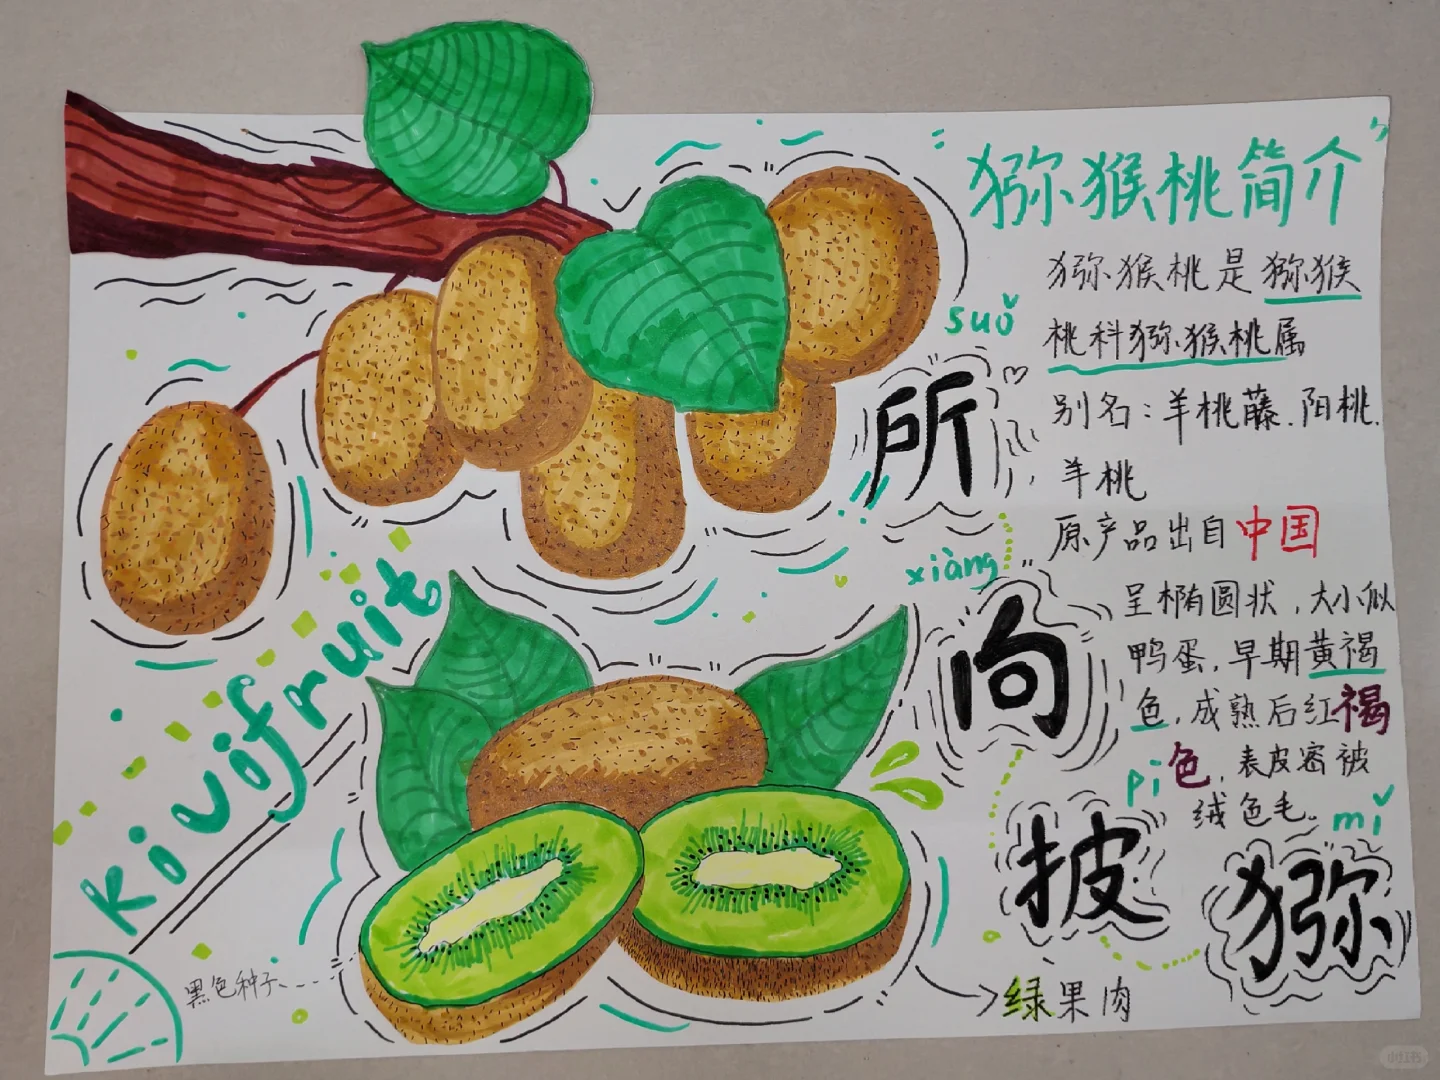 猕猴桃简介
猕猴桃是猕猴
桃科猕猴桃属
别名：羊桃藤.阳桃.
羊桃
原产品出自中国
呈椭圆状，大小似
鸭蛋，早期黄褐
色，成熟后红褐
色，表皮密被
绒色毛。
suǒ
所
xiàng
向
pi
披
mǐ
猕
Kiwifruit
黑色种子
绿果肉
小红书